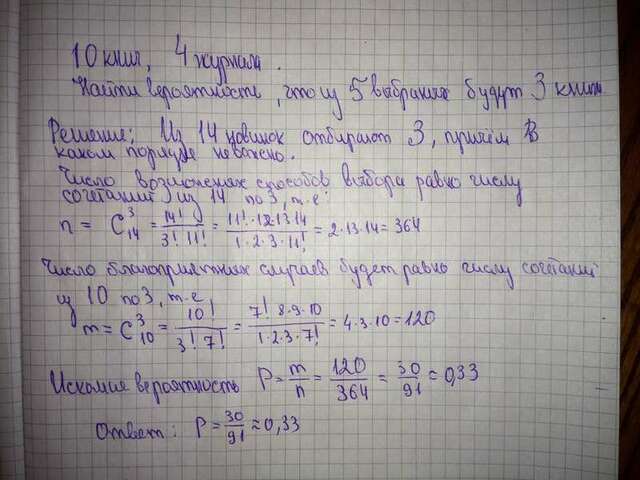 10 книг, 4 журнала.
Найти вероятность, что из 5 выбраных будут 3 книги
Решение: Из 14 новинок отбирают 3, причём в
каком порядке неважно.
Число возможных способов выбора равно числу
сочетаний из 14 по 3, т.е:
n = C₁₄³ = 14!/(3! 11!) = (11!·12·13·14)/(1·2·3·11!) = 2·13·14 = 364
Число благоприятных случаев будет равно числу сочетаний
из 10 по 3, т.е
m = C₁₀³ = 10!/(3! 7!) = (7! 8·9·10)/(1·2·3·7!) = 4·3·10 = 120
Искомая вероятность P = m/n = 120/364 = 30/91 ≈ 0,33
Ответ: P = 30/91 ≈ 0,33